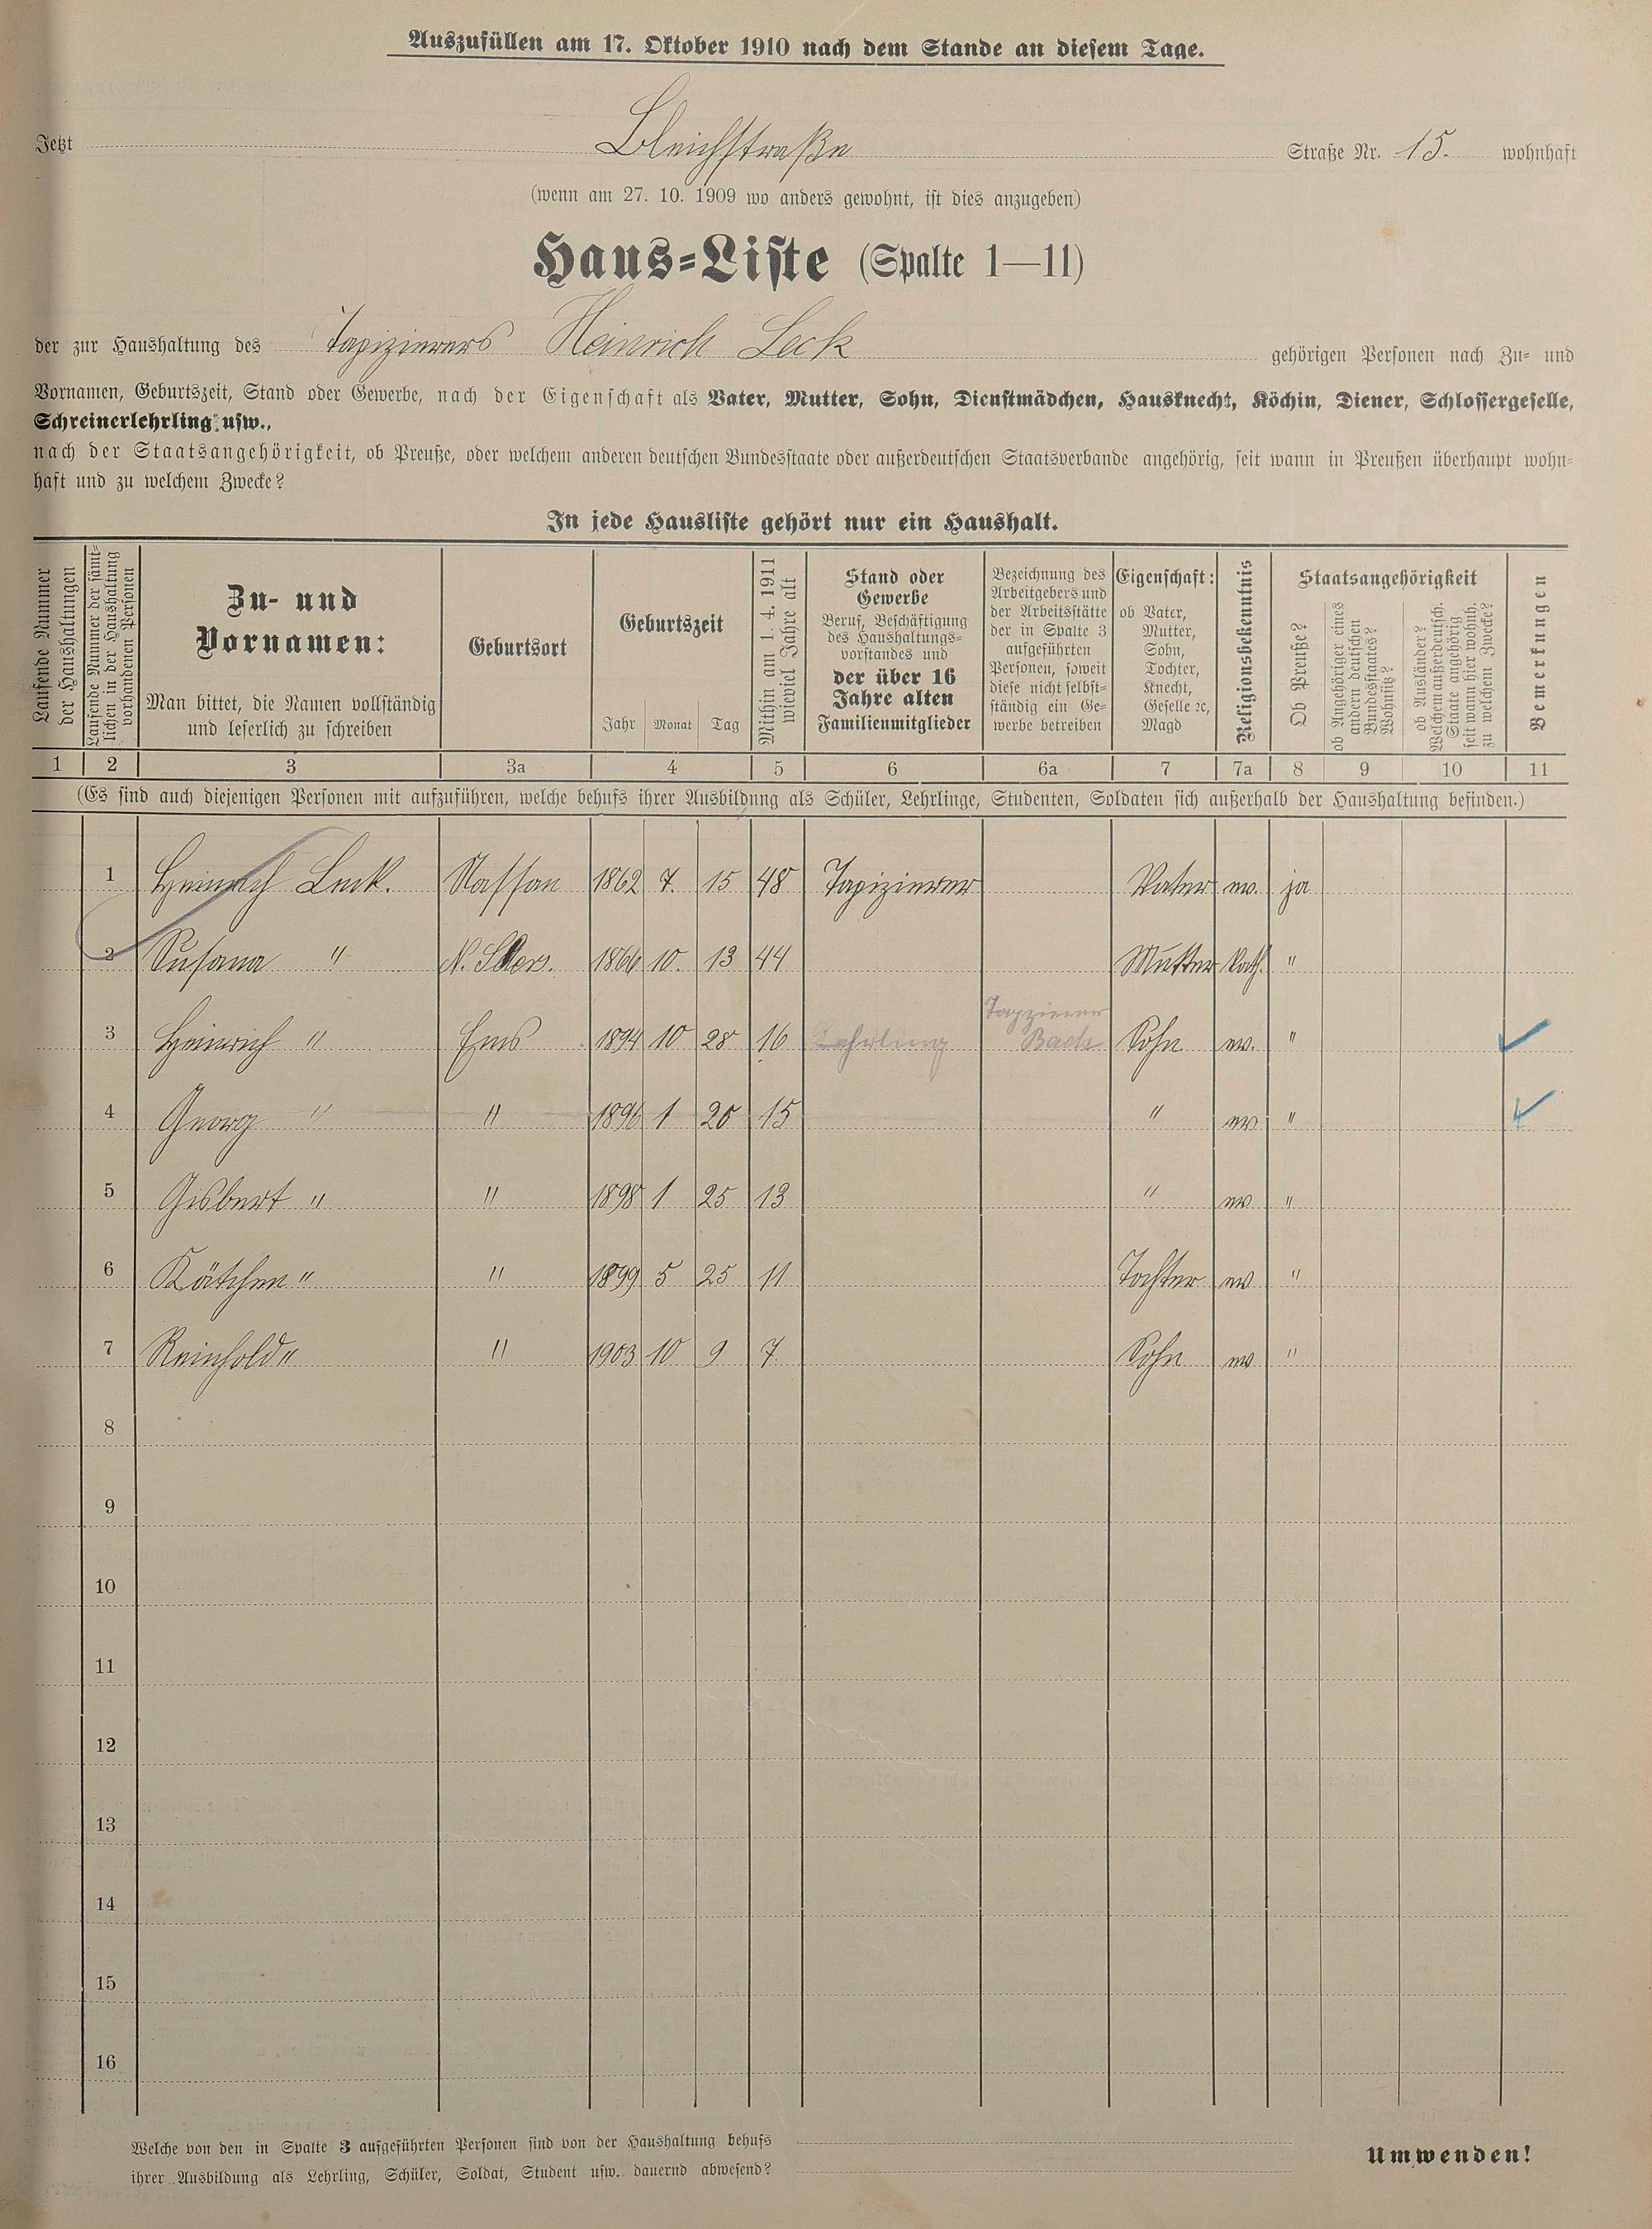 Auszufüllen am 17. Oktober 1910 nach dem Stande an diesem Tage.
Jetzt Bleichstraße Straße Nr. 15. wohnhaft
(wenn am 27. 10. 1909 wo anders gewohnt, ist dies anzugeben)
Haus-Liste (Spalte 1—11)
der zur Haushaltung des Tapezierers Heinrich Leck gehörigen Personen nach Zu- und
Vornamen, Geburtszeit, Stand oder Gewerbe, nach der Eigenschaft als Vater, Mutter, Sohn, Dienstmädchen, Hausknecht, Köchin, Diener, Schlossergeselle,
Schreinerlehrling usw.,
nach der Staatsangehörigkeit, ob Preuße, oder welchem anderen deutschen Bundesstaate oder außerdeutschen Staatsverbande angehörig, seit wann in Preußen überhaupt wohn-
haft und zu welchem Zwecke?
In jede Hausliste gehört nur ein Haushalt.
Laufende Nummer der Haushaltungen
Laufende Nummer der sämt-
lichen in der Haushaltung
vorhandenen Personen
Zu- und
Vornamen:
Man bittet, die Namen vollständig
und leserlich zu schreiben
Geburtsort
Geburtszeit
Jahr Monat Tag
Mithin am 1. 4. 1911
wieviel Jahre alt
Stand oder
Gewerbe
Beruf, Beschäftigung
des Haushaltungs-
vorstandes und
der über 16
Jahre alten
Familienmitglieder
Bezeichnung des
Arbeitgebers und
der Arbeitsstätte
der in Spalte 3
aufgeführten
Personen, soweit
diese nicht selbst-
ständig ein Ge-
werbe betreiben
Eigenschaft:
ob Vater,
Mutter,
Sohn,
Tochter,
Knecht,
Geselle ꝛc,
Magd
Religionsbekenntnis
Staatsangehörigkeit
Ob Preuße?
ob Angehöriger eines
andern deutschen
Bundesstaates?
Wohnsitz?
ob Ausländer?
Welchem außerdeutsch.
Staate angehörig
seit wann hier wohnh.
zu welchem Zwecke?
Bemerkungen
1 2 3 3a 4 5 6 6a 7 7a 8 9 10 11
(Es sind auch diejenigen Personen mit aufzuführen, welche behufs ihrer Ausbildung als Schüler, Lehrlinge, Studenten, Soldaten sich außerhalb der Haushaltung befinden.)
1 Heinrich Leck. Nassau 1862 7. 15 48 Tapezierer Vater ev. ja
2 Susana " 1866 10. 13 44 Mutter Kath. "
3 Heinrich " Ems 1894 10 28 16 Lehrling Tapezierer Bach Sohn ev. "
4 Georg " " 1896 1 20 15 " ev "
5 Gisbert " " 1898 1 25 13 " ev "
6 Kätchen " " 1899 5 25 11 Tochter ev "
7 Reinhold " " 1903 10 9 7 Sohn ev "
8
9
10
11
12
13
14
15
16
Welche von den in Spalte 3 aufgeführten Personen sind von der Haushaltung behufs
ihrer Ausbildung als Lehrling, Schüler, Soldat, Student usw. dauernd abwesend?
Umwenden!